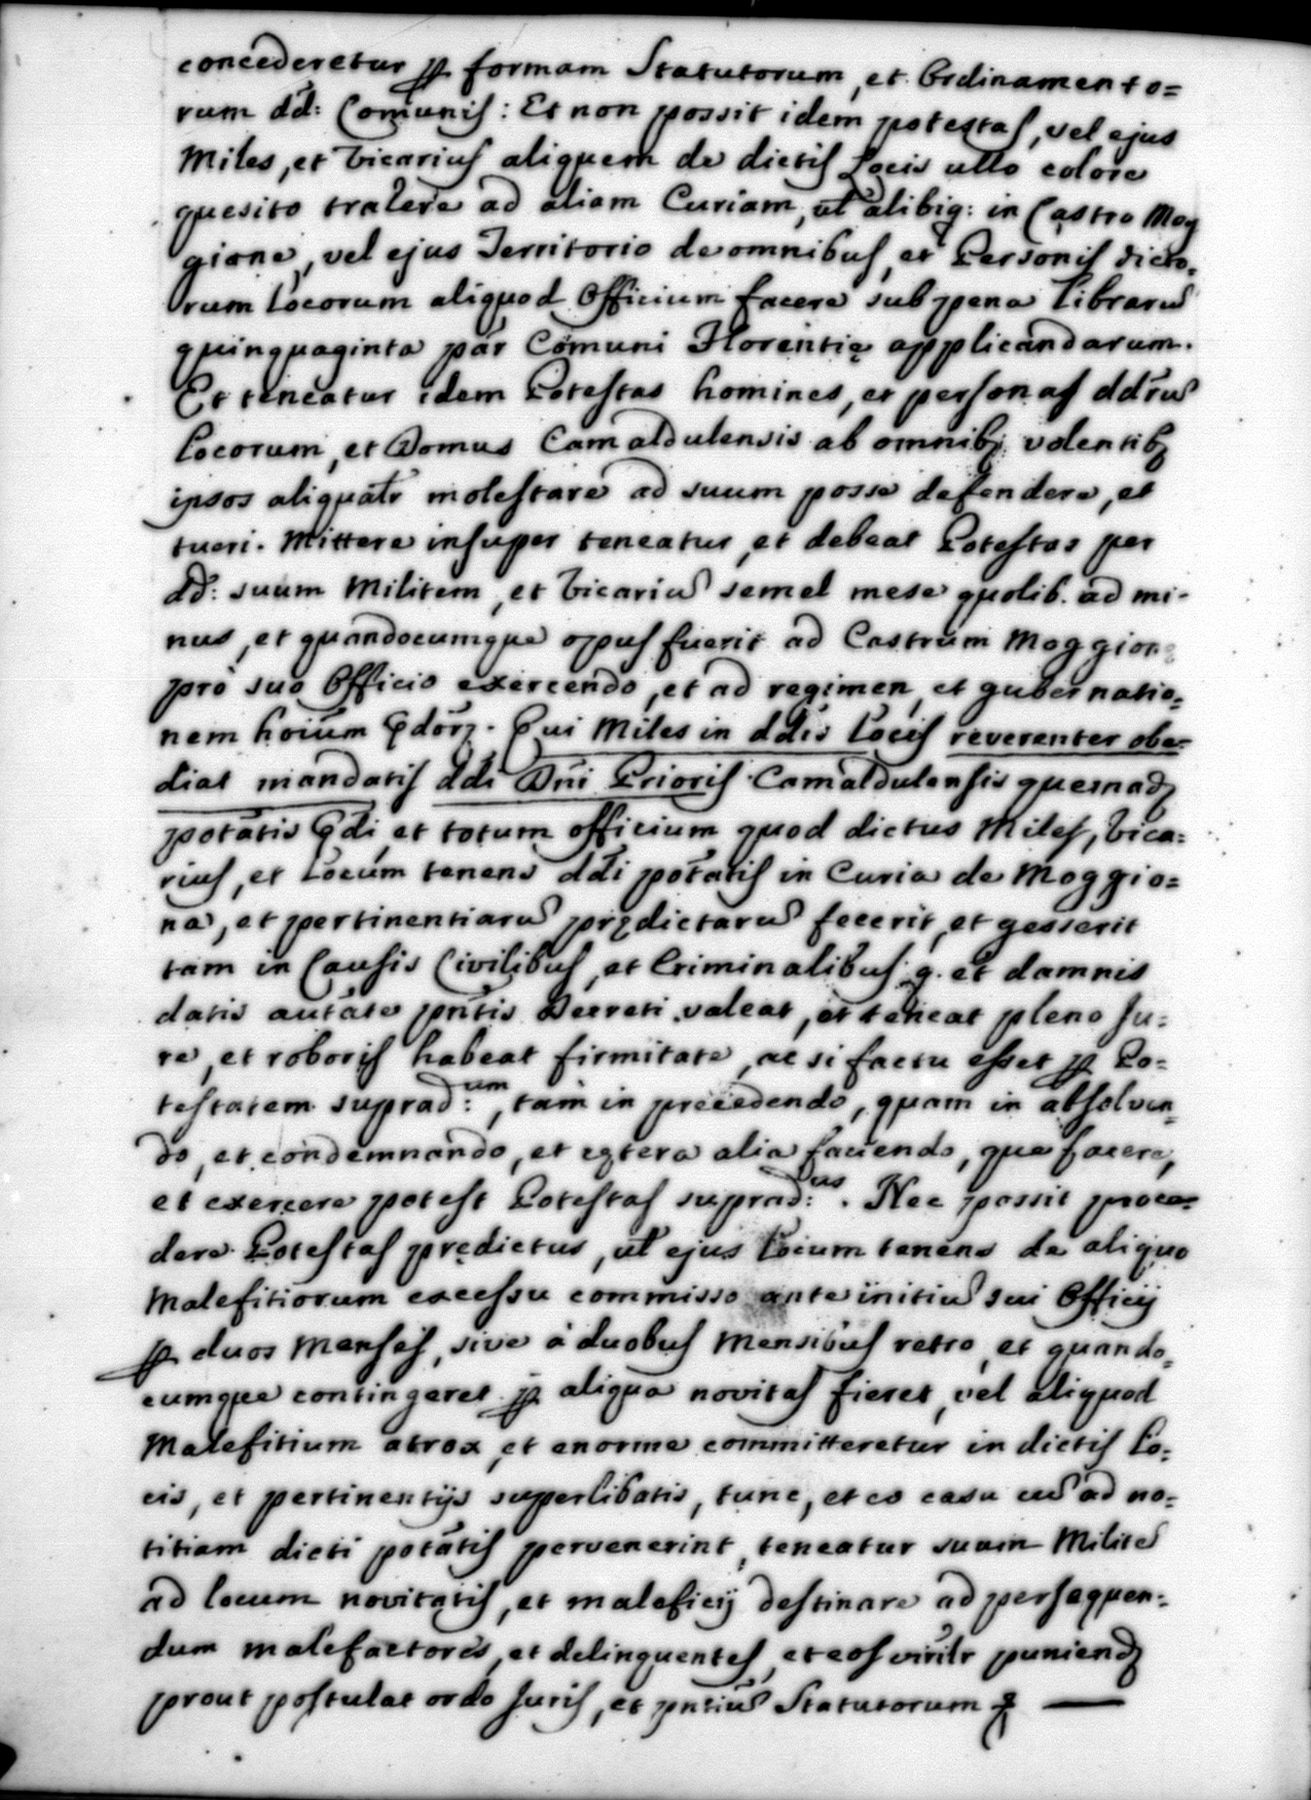 concederetur ꝑ formam Statutorum, et Ordinamento=
rum dd: Com̃unis: Et non possit idem potestas, vel ejus
Miles, et Vicarius aliquem de dictis Locis ullo colore
quesito trahere ad aliam Curiam, ul̃ alibiq: in Castro Mog
gione, vel ejus Territorio de omnibus, et Personis dicto=
rum Locorum aliquod Officium facere sub pena Librarũ
quinquaginta par Com̃uni Florentię applicandarum.
Et teneatur idem Potestas homines, et personas dd̃rũ
Locorum, et Domus Camaldulensis ab omnibꝫ volentibꝫ
ipsos aliqualr̃ molestare ad suum posse defendere, et
tueri. Mittere insuper teneatur, et debeat Potestas per
dd̃: suum Militem, et Vicariũ semel mese quolib. ad mi-
nus, et quandocumque opus fuerit ad Castrum Moggione
pro suo Officio exercendo, et ad regimen, et gubernatio=
nem hoiũm p̃dorꝫ. Qui Miles in dd̃is Locis reverenter obe=
diat mandatis dd̃i Dñi Prioris Camaldulensis quemadꝫ
potãtis p̃di, et totum officium quod dictus Miles, Vica=
rius, et Locum tenens dd̃i potãtis in Curia de Moggio=
na, et pertinentiarũ prędictarũ fecerit, et gesserit
tam in Causis Civilibus, et Criminalibus q. et damnis
datis autãte pñtis Decreti valeat, et teneat pleno Ju=
re, et roboris habeat firmitate, ac si factu esset ꝑ Po=
testatem suprad:um, tam in precedendo, quam in absolven=
do, et condemnando, et cętera alia faciendo, que facere,
et exercere potest Potestas suprad:us. Nec possit proce=
dere Potestas prędictus, ul̃ ejus Locum tenens de aliquo
Malefitiorum excessu commisso ante initiũ sui Officij
ꝑ duos Menses, sive à duobus Mensibus retro, et quando=
cumque contingeret ꝑ aliqua novitas fieret, vel aliquod
Malefitium atrox, et enorme committeretur in dictis Lo=
cis, et pertinentijs superlibatis, tunc, et eo casu cũ ad no=
titiam dicti potãtis pervenerint, teneatur suum Militẽ
ad locum novitatis, et maleficij destinare ad persequen=
dum malefactores, et delinquentes, et eos virilr̃ puniendꝫ
prout postulat ordo Juris, et pñtiũ Statutorum